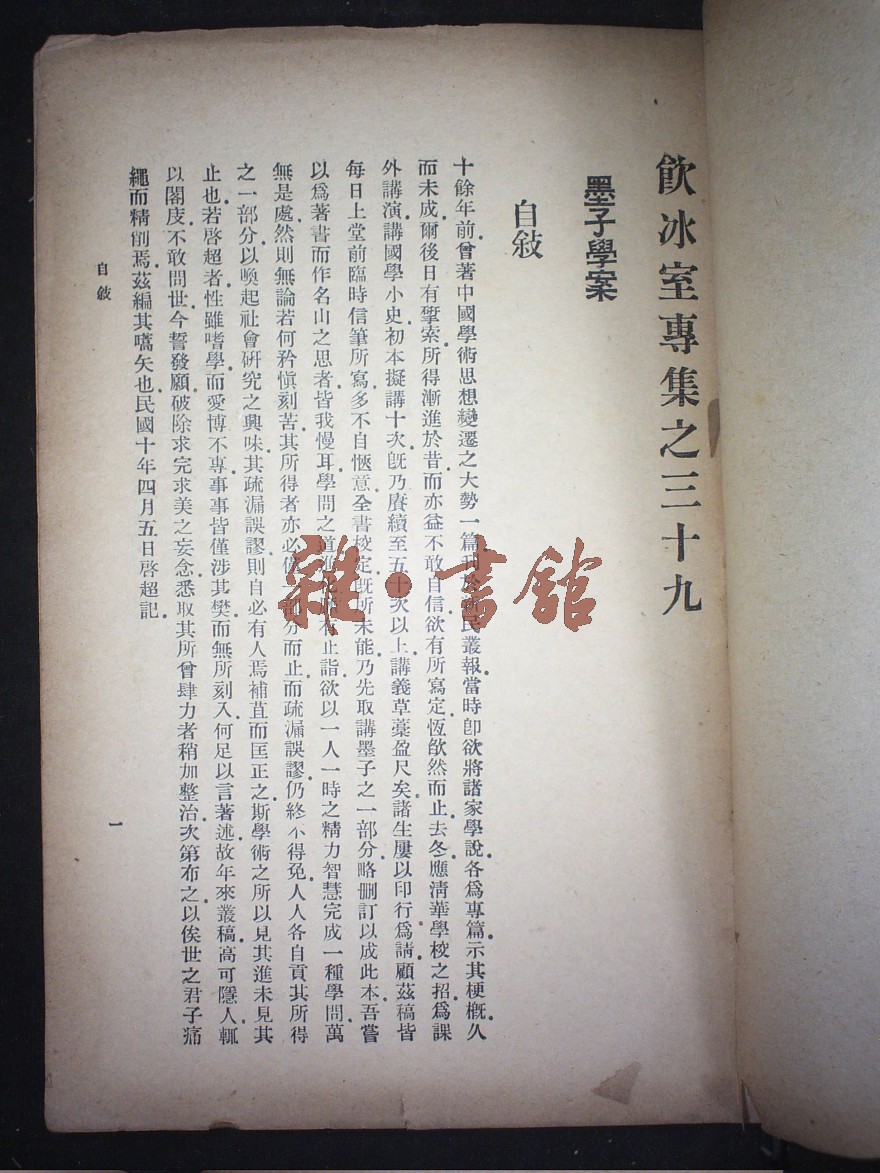 飲冰室專集之三十九
墨子學案
自敍
十餘年前曾著中國學術思想變遷之大勢一篇刊於新民叢報當時卽欲將諸家學說各爲專篇示其梗槪久
而未成爾後日有揅索所得漸進於昔而亦益不敢自信欲有所寫定恆欿然而止去冬應淸華學校之招爲課
外講演講國學小史初本擬講十次旣乃賡續至五十次以上講義草藁盈尺矣諸生屢以印行爲請顧茲稿皆
每日上堂前臨時信筆所寫多不自愜意全書校定旣所未能乃先取講墨子之一部分略删訂以成此本吾嘗
以爲著書而作名山之思者皆我慢耳學問之道進化靡有止詣欲以一人一時之精力智慧完成一種學問萬
無是處然則無論若何矜愼刻苦其所得者亦必僅一部分而止而疏漏誤謬仍終不得免人人各自貢其所得
之一部分以喚起社會硏究之興味其疏漏誤謬則自必有人焉補苴而匡正之斯學術之所以見其進未見其
止也若啓超者性雖嗜學而愛博不專事事皆僅涉其樊而無所刻入何足以言著述故年來叢稿高可隱人輒
以閣庋不敢問世今誓發願破除求完求美之妄念悉取其所曾肆力者稍加整治次第布之以俟世之君子痛
繩而精削焉茲編其嚆矢也民國十年四月五日啓超記
自敍
一
雜·書館